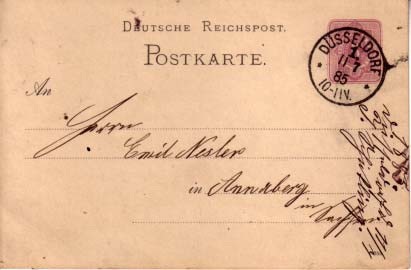 DEUTSCHE REICHSPOST.
POSTKARTE.
* DÜSSELDORF *
1
11 7
85
10-11V.
An
Herrn
Emil Nesler
in Annaberg
in Sachsen